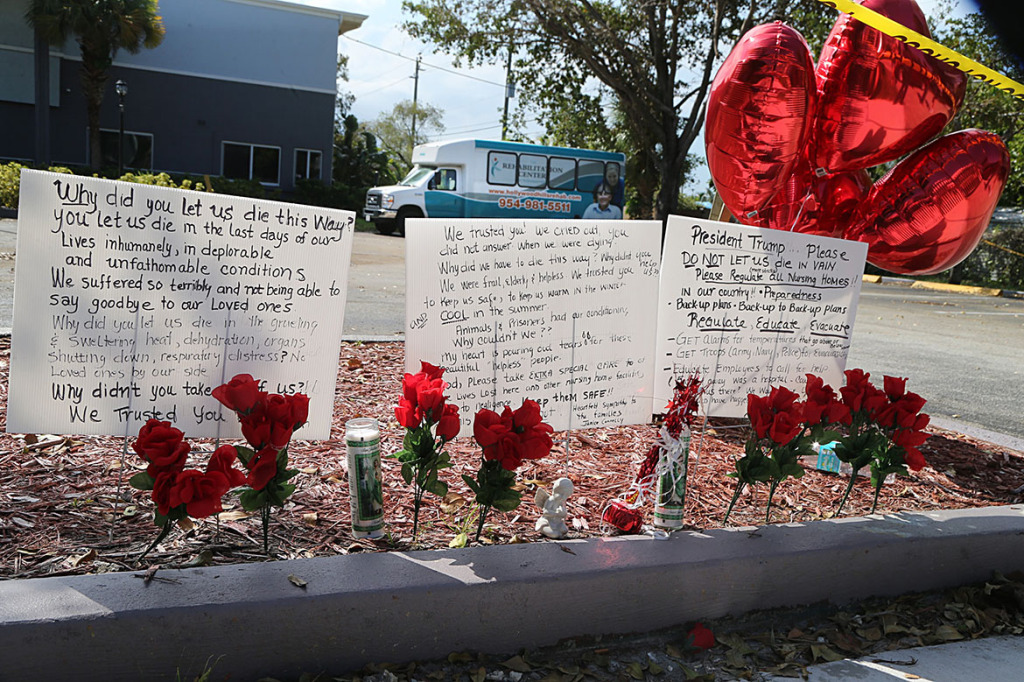 REHABILITATION
CENTER
954-981-5511
Why did you let us die this Way?
you let us die in the last days of our
Lives inhumanely, in deplorable
and unfathomable conditions
We suffered so terribly and not being able to
say goodbye to our Loved ones
Why did you let us die in the grueling
& sweltering heat, dehydration, organs
shutting down, respiratory distress? No
Loved ones by our side
Why didn't you take of us?!!
We Trusted you
We trusted you! We cried out, you
did not answer when we were dying!
Why did we have to die this way? Why didn't you
We were frail, elderly & helpless We trusted you
to keep us safe, to keep us warm in the winter
COOL in the summer
Animals & Prisoners had air conditioning,
Why couldn't we??
My heart is pouring out tears for these
beautiful "helpless" people.
God, Please take EXTRA SPECIAL CARE
Lives Lost here and other nursing home
to negligence keep them SAFE!!
Heartfelt Sympathy to
the Families
President Trump... Please
DO NOT LET us die in VAIN
Please Regulate all Nursing Homes!
in our country!! • Preparedness
Back-up plans • Back-up to Back-up plans
Regulate, Educate, Evacuate
- GET Alarms for temperatures that go
- GET Troops (Army, Navy, Police) for Evacuation
- Educate Employees to call for help
away was a hospital